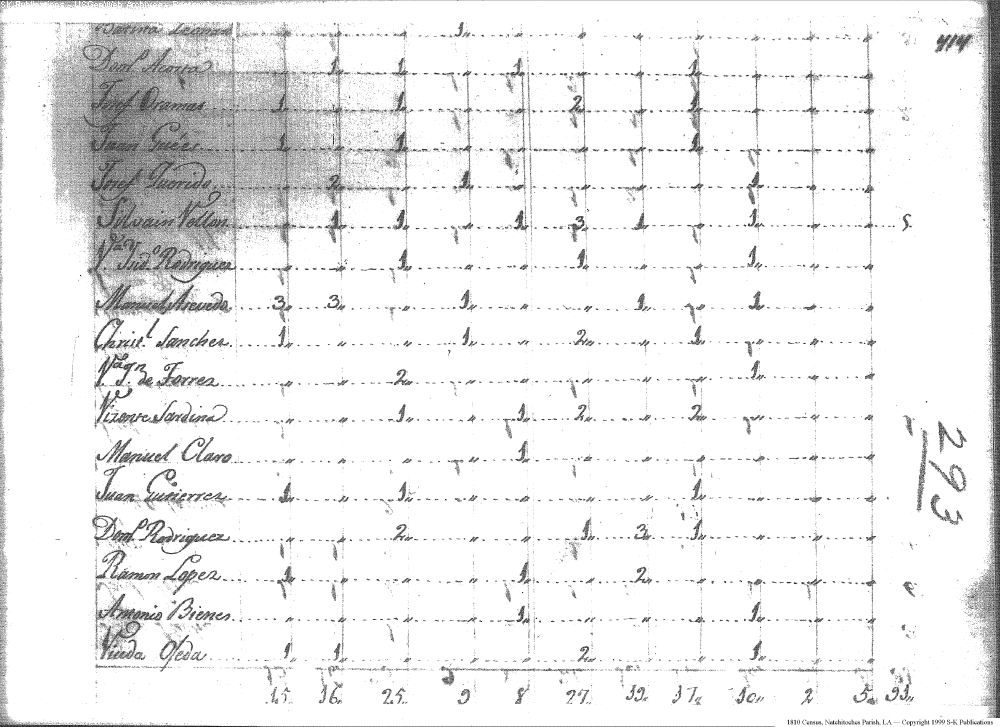 414
1.
Dom.º Acosta 〃 1 1 〃 1 〃 〃 1 〃 〃 〃
Josef Oramas 1 〃 1 〃 〃 2 〃 1 〃 〃 〃
Juan 1 〃 1 〃 〃 〃 〃 1 〃 〃 〃
Josef Guerido 〃 2 〃 1 〃 〃 〃 〃 1 〃 〃
Silvain Vollan 〃 1 1 〃 1 3 1 〃 1 〃 〃 5.
V.da Isid.º Rodriguez 〃 〃 1 〃 〃 1 〃 〃 1 〃 〃
Manuel Acevedo 3 3 〃 1 〃 〃 1 〃 1 〃 〃
Christ.l Sanchez 1 〃 〃 1 〃 2 〃 1 〃 〃 〃
de Torrez 〃 〃 2 〃 〃 〃 〃 〃 1 〃 〃
Vizente Sardina 〃 〃 1 〃 1 2 〃 2 〃 〃 〃
Manuel Claro 〃 〃 〃 〃 1 〃 〃 〃 〃 〃 〃
293
Juan Gutierrez 1 〃 1 〃 〃 〃 〃 1 〃 〃 〃
Dom.º Rodriguez 〃 〃 2 〃 〃 1 3 1 〃 〃 〃
Ramon Lopez 1 〃 〃 〃 1 〃 2 〃 〃 〃 〃
Antonio Bienes 〃 〃 〃 〃 1 〃 〃 〃 1 〃 〃
Viuda Ojeda 1 1 〃 〃 〃 2 〃 〃 1 〃 〃
15 16 25 9 8 27 19 17 10 2 5 91
1810 Census, Natchitoches Parish, LA — Copyright 1999 S-K Publications